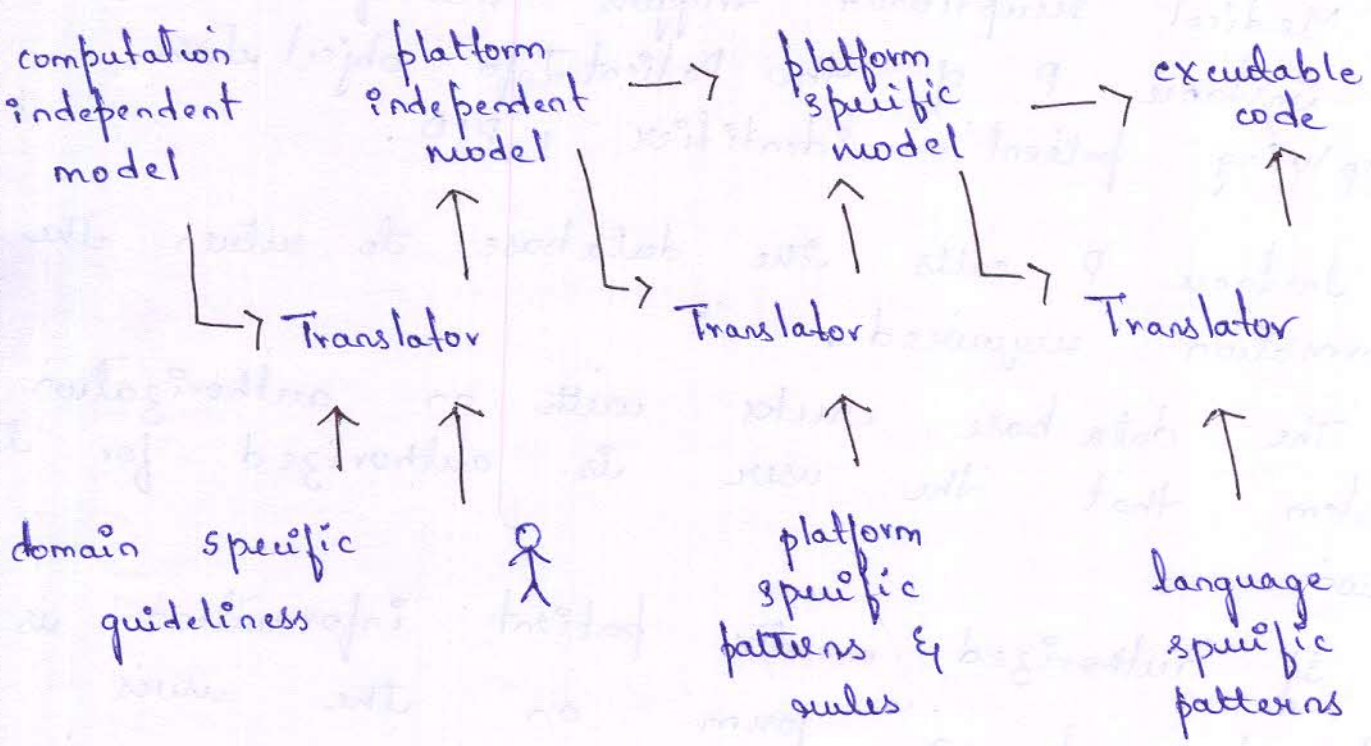 computation
independent
model
platform
independent
model
platform
specific
model
executable
code
Translator
Translator
Translator
domain specific
guideliness
platform
specific
patterns &
rules
language
specific
patterns